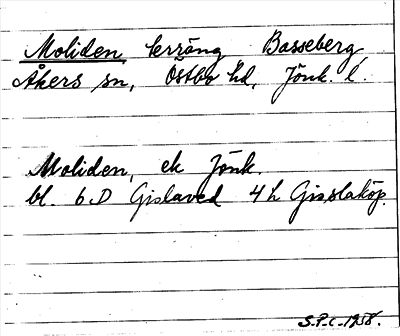 Moliden, terräng Basseberg,
Åkers sn, Östbo hd, Jönk. l.
Moliden, ek Jönk.
bl. 6 D Gislaved 4 h Gisslaköp.
S.P.C. 1958.